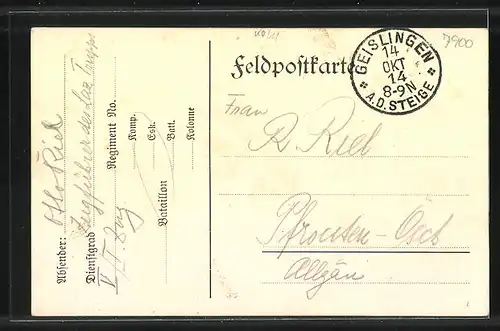 7900
Feldpostkarte
GEISLINGEN
14
OKT
14
8-9N
* A.D. STEIGE *
Frau
R. Rieb
Pfronten-Ösch
Allgäu
Absender: Otto Rieb
Dienstgrad Zugführer des Laz. Trupps
Regiment No.
Komp.
Esk.
Batt.
Kolonne
Bataillon